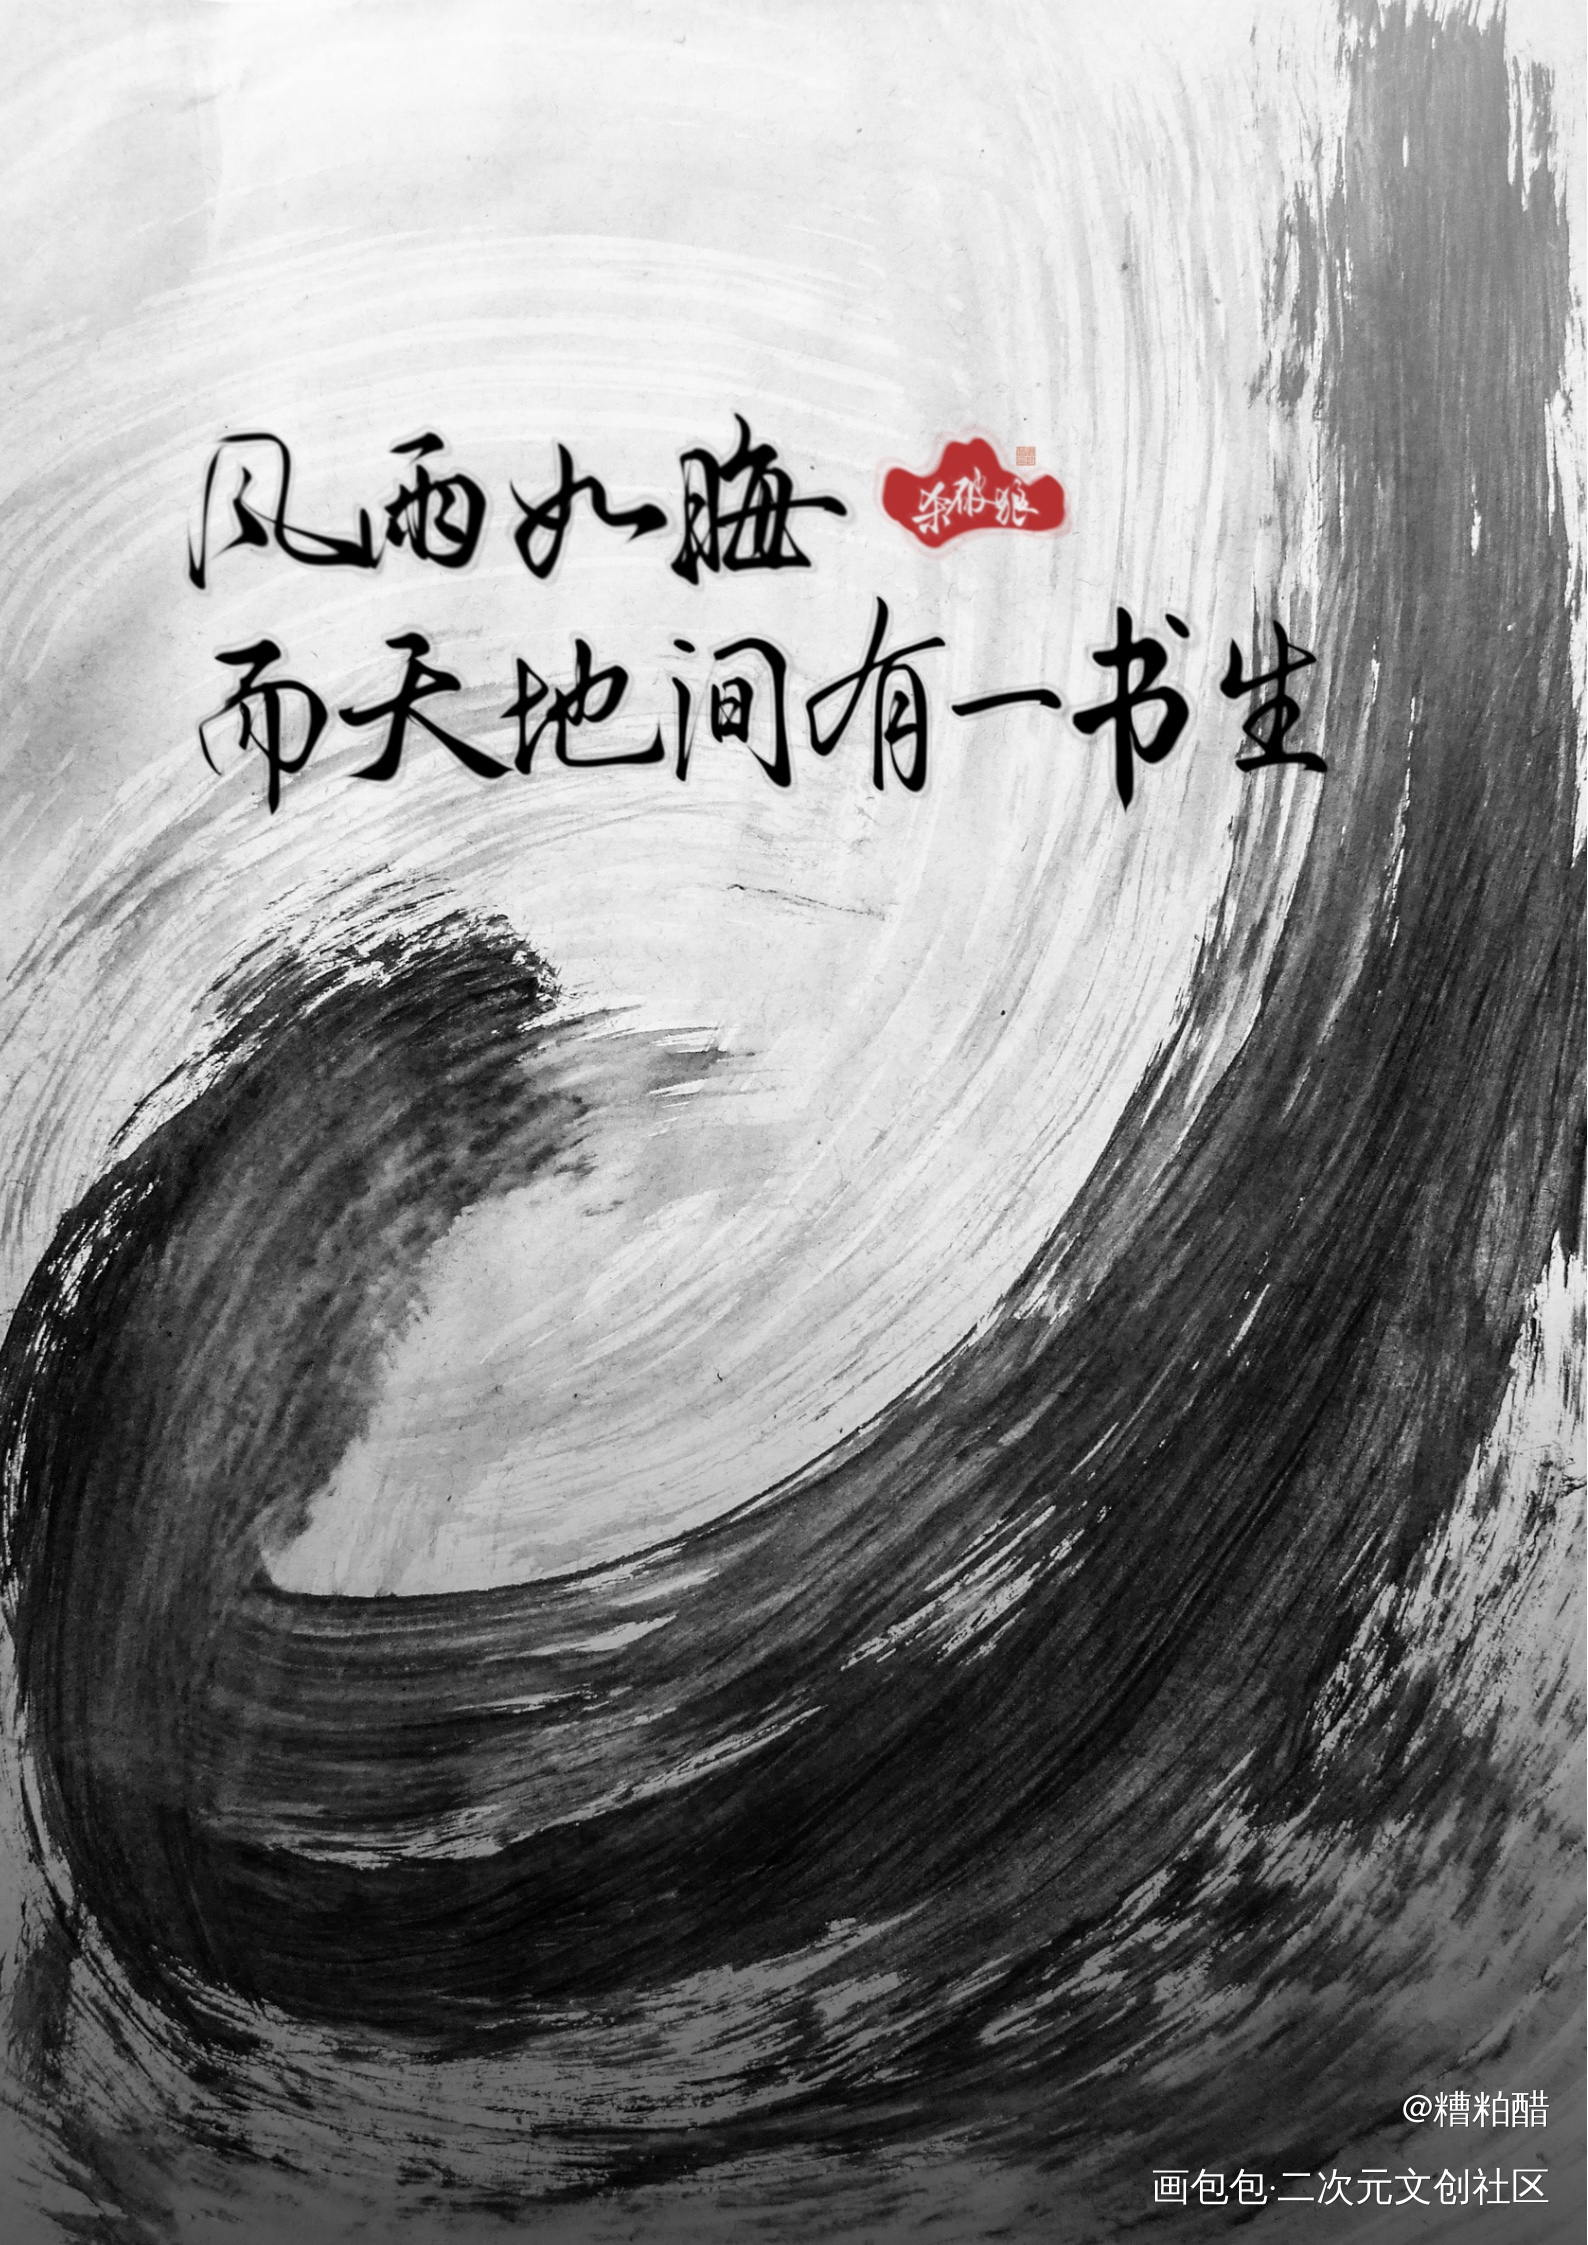 风雨如晦
杀破狼
而天地间有一书生
@糟粕醋
画包包·二次元文创社区